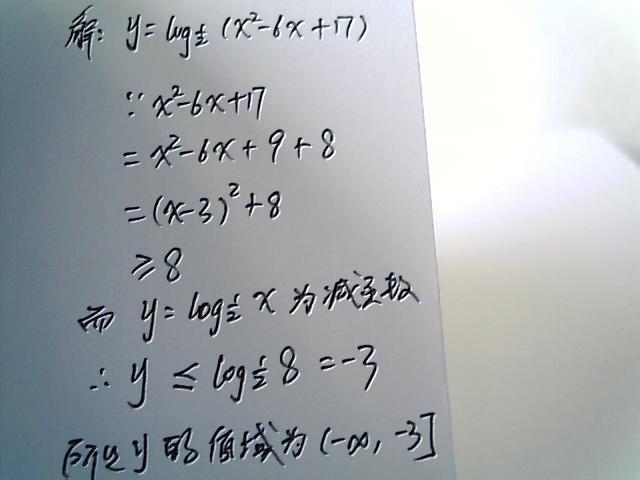 解: y=log½ (x²-6x+17)
∵x²-6x+17
=x²-6x+9+8
=(x-3)²+8
≥8
而 y=log½ x 为减函数
∴ y ≤ log½ 8 =-3
所以y的值域为(-∞, -3]